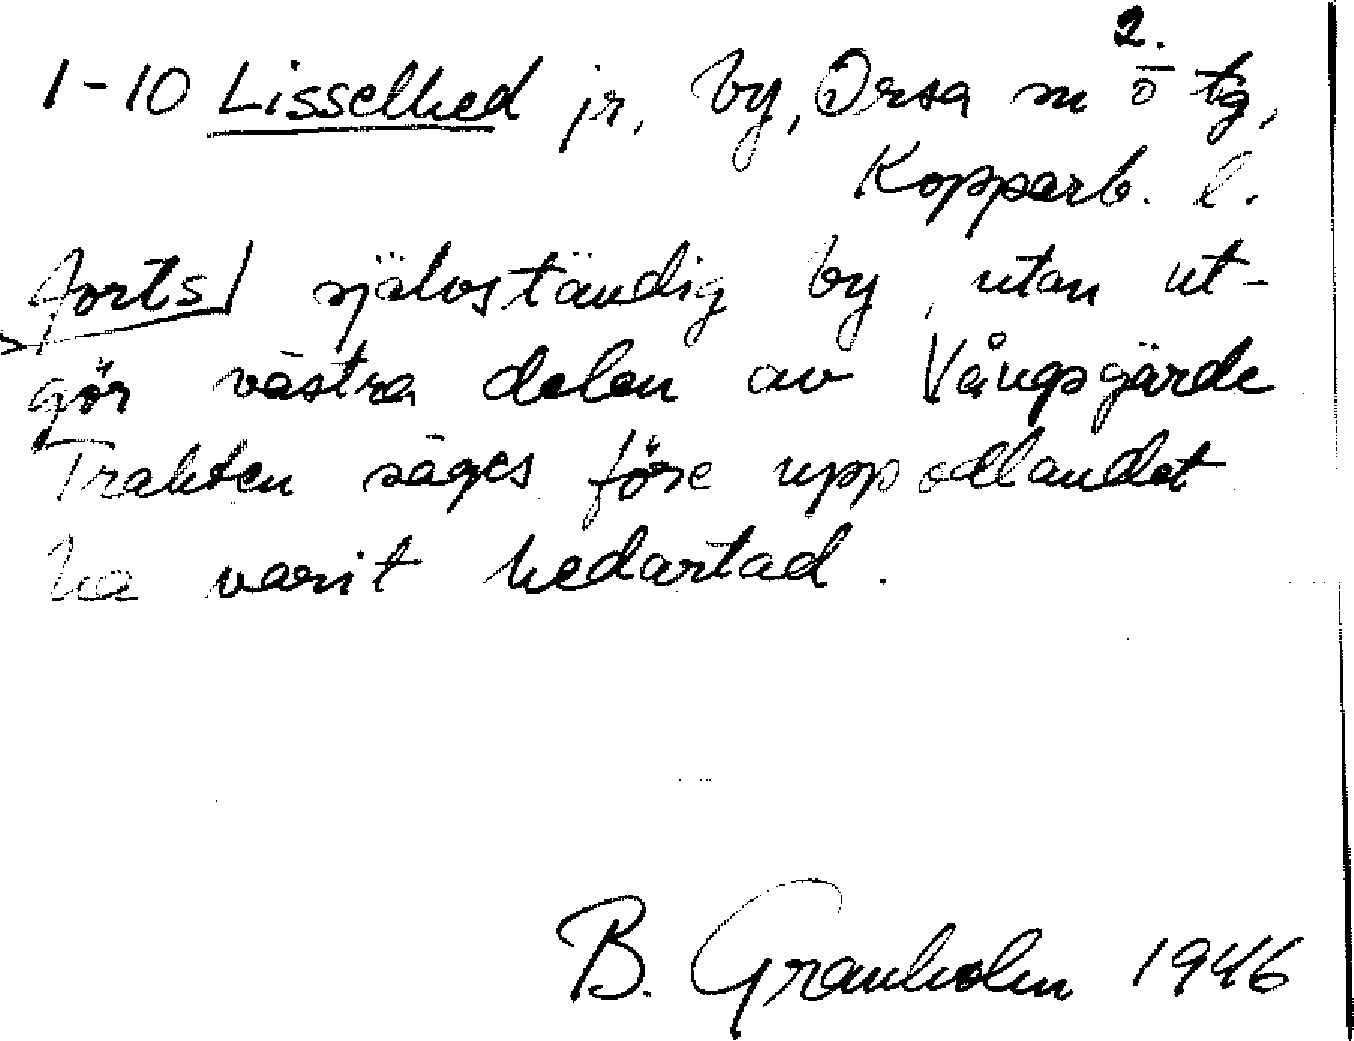 2.
1-10 Lisselhed jr, by, Orsa sn ö tg,
Kopparb. l.
forts/ självständig by, utan ut-
gör västra delen av Vångsgärde
Trakten säges före uppodlandet
ha varit hedartad.
B. Granholm 1946